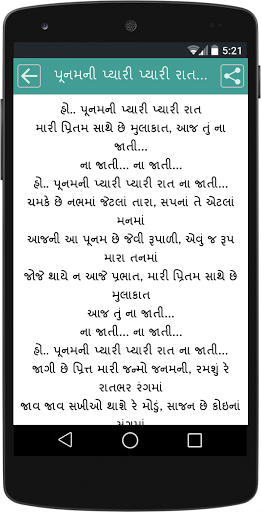 5:21
પૂનમની પ્યારી પ્યારી રાત...
હો.. પૂનમની પ્યારી પ્યારી રાત
મારી પ્રિતમ સાથે છે મુલાકાત, આજ તું ના
જાતી...
ના જાતી... ના જાતી...
હો.. પૂનમની પ્યારી પ્યારી રાત ના જાતી...
ચમકે છે નભમાં જેટલાં તારા, સપનાં તે એટલાં
મનમાં
આજની આ પૂનમ છે જેવી રૂપાળી, એવું જ રૂપ
મારા તનમાં
જોજે થાયે ન આજે પ્રભાત, મારી પ્રિતમ સાથે છે
મુલાકાત
આજ તું ના જાતી...
ના જાતી... ના જાતી...
હો.. પૂનમની પ્યારી પ્યારી રાત ના જાતી...
જાગી છે પ્રિત્ત મારી જન્મો જનમની, રમશું રે
રાતભર રંગમાં
જાવ જાવ સખીઓ થાશે રે મોડું, સાજન છે કોઇનાં